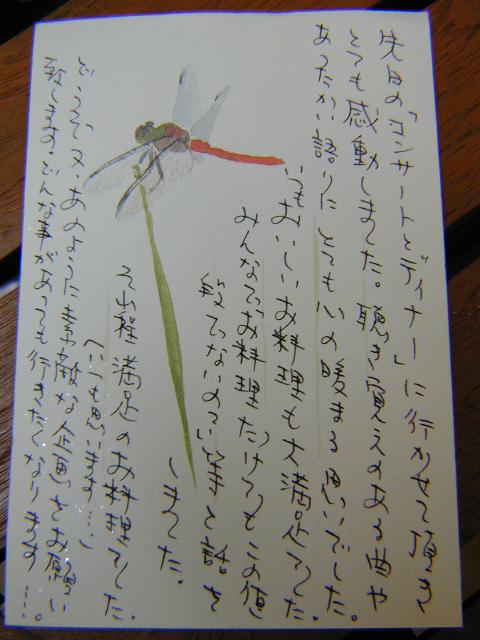 先日の「コンサートとディナー」に行かせて頂き
とても感動しました。聴き覚えのある曲や
あたたかい語りにとても心の暖まる思いでした。
いつもおいしいお料理も大満足でした。
みんなで“お料理だけでもこの値
段でつないのでは”等と話を
しました。
それ程満足のお料理でした。
どうぞ又、あのような素敵な企画をお願い
致します。どんな事があっても行きたくなります…。